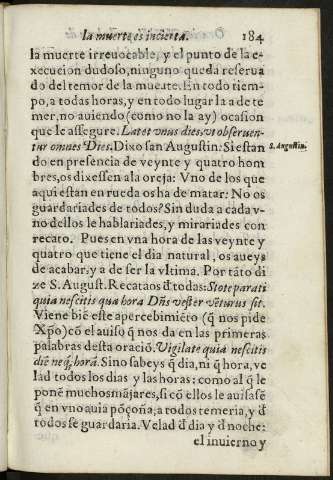 la muerte es incierta. 184
la muerte irreuocable, y el punto de la e-
xecucion dudoso, ninguno queda reserua
do del temor de la muerte. En todo tiem-
po, a todas horas, y en todo lugar la a de te
mer, no auiendo (como no la ay) ocasion
que le assegure. Latet vnus dies, vt obseruen-
tur omnes Dies. Dixo san Augustin: Si estan
S. Augustin.
do en presencia de veynte y quatro hom
bres, os dixessen a la oreja: Vno de los que
aqui estan en rueda os ha de matar: No os
guardariades de todos? Sin duda a cada v-
no dellos le hablariades, y mirariades con
recato. Pues en vna hora de las veynte y
quatro que tiene el dia natural, os aueys
de acabar: y a de ser la vltima. Por tãto di
ze S. August. Recataos đ todas: Stote parati
quia nescitis qua hora Dñs vester vẽturus sit.
Viene biẽ este apercebimiẽto (q̃ nos pide
Xp̃o) cõ el auiso q̃ nos da en las primeras
palabras desta oraciõ. Vigilate quia nescitis
diẽ neq̃ horã. Sino sabeys q̃ dia, ni q̃ hora, ve
lad todos los dias y las horas: como al q̃ le
ponẽ muchos mãjares, si cõ ellos le auisasẽ
q̃ en vno auia põçoña; a todos temeria, y đ
todos se guardaria. Velad đ dia y đ noche:
el inuierno y